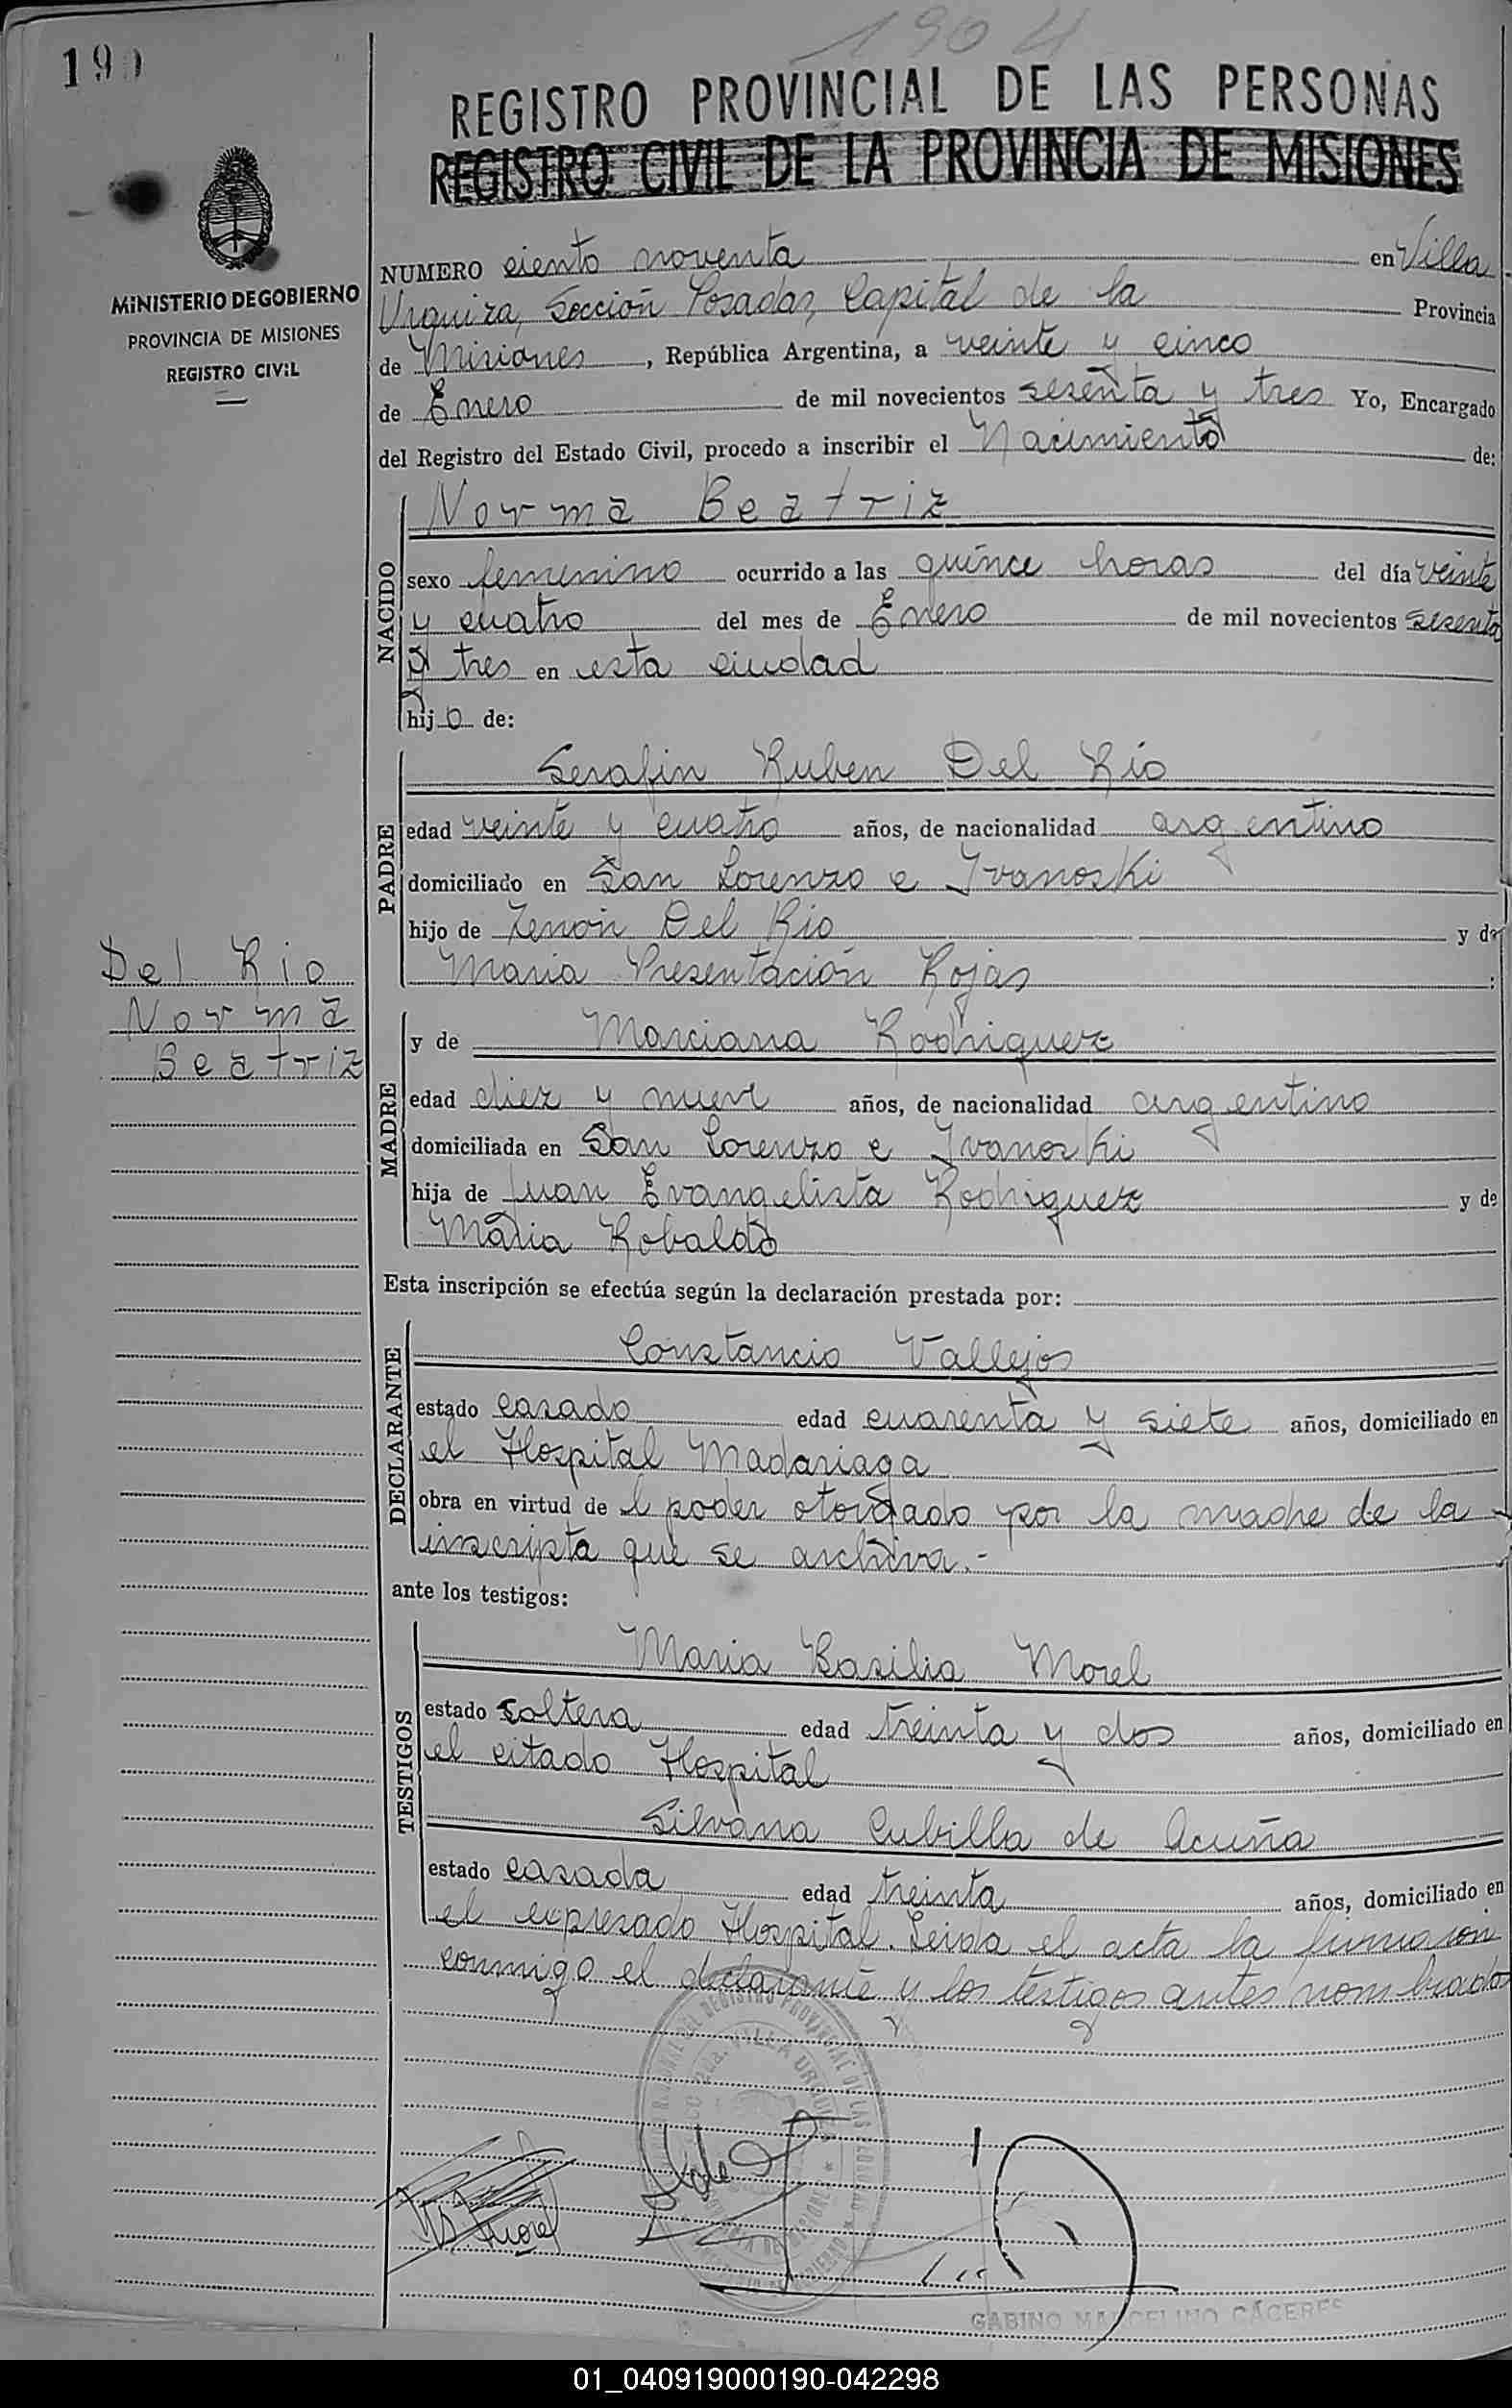 190
1904
REGISTRO PROVINCIAL DE LAS PERSONAS
REGISTRO CIVIL DE LA PROVINCIA DE MISIONES
MINISTERIO DE GOBIERNO
PROVINCIA DE MISIONES
REGISTRO CIVIL
NUMERO ciento noventa en Villa
Urquiza, Sección Posadas, Capital de la Provincia
de Misiones, República Argentina, a veinte y cinco
de Enero de mil novecientos sesenta y tres Yo, Encargado
del Registro del Estado Civil, procedo a inscribir el Nacimiento de:
NACIDO
Norma Beatriz
sexo femenino ocurrido a las quince horas del día veinte
y cuatro del mes de Enero de mil novecientos sesenta
y tres en esta ciudad
hijo de:
PADRE
Serafin Ruben Del Rio
edad veinte y cuatro años, de nacionalidad argentino
domiciliado en San Lorenzo e Ivanoski
hijo de Zenón Del Rio y de
Maria Presentación Rojas :
Del Rio
Norma
Beatriz
MADRE
y de Marciana Rodriguez
edad diez y nueve años, de nacionalidad argentino
domiciliada en San Lorenzo e Ivanoski
hija de Juan Evangelista Rodriguez y de
Maria Robaldo
Esta inscripción se efectúa según la declaración prestada por:
DECLARANTE
Constancio Vallejos
estado casado edad cuarenta y siete años, domiciliado en
el Hospital Madariaga
obra en virtud de l poder otorgado por la madre de la
inscripta que se archiva.-
ante los testigos:
TESTIGOS
Maria Basilia Morel
estado soltera edad treinta y dos años, domiciliado en
el citado Hospital
Silvana Cubilla de Acuña
estado casada edad treinta años, domiciliado en
el expresado Hospital. Leida el acta la firmaron
conmigo el declarante y los testigos antes nombrados
GABINO MARCELINO CÁCERES
01_040919000190-042298